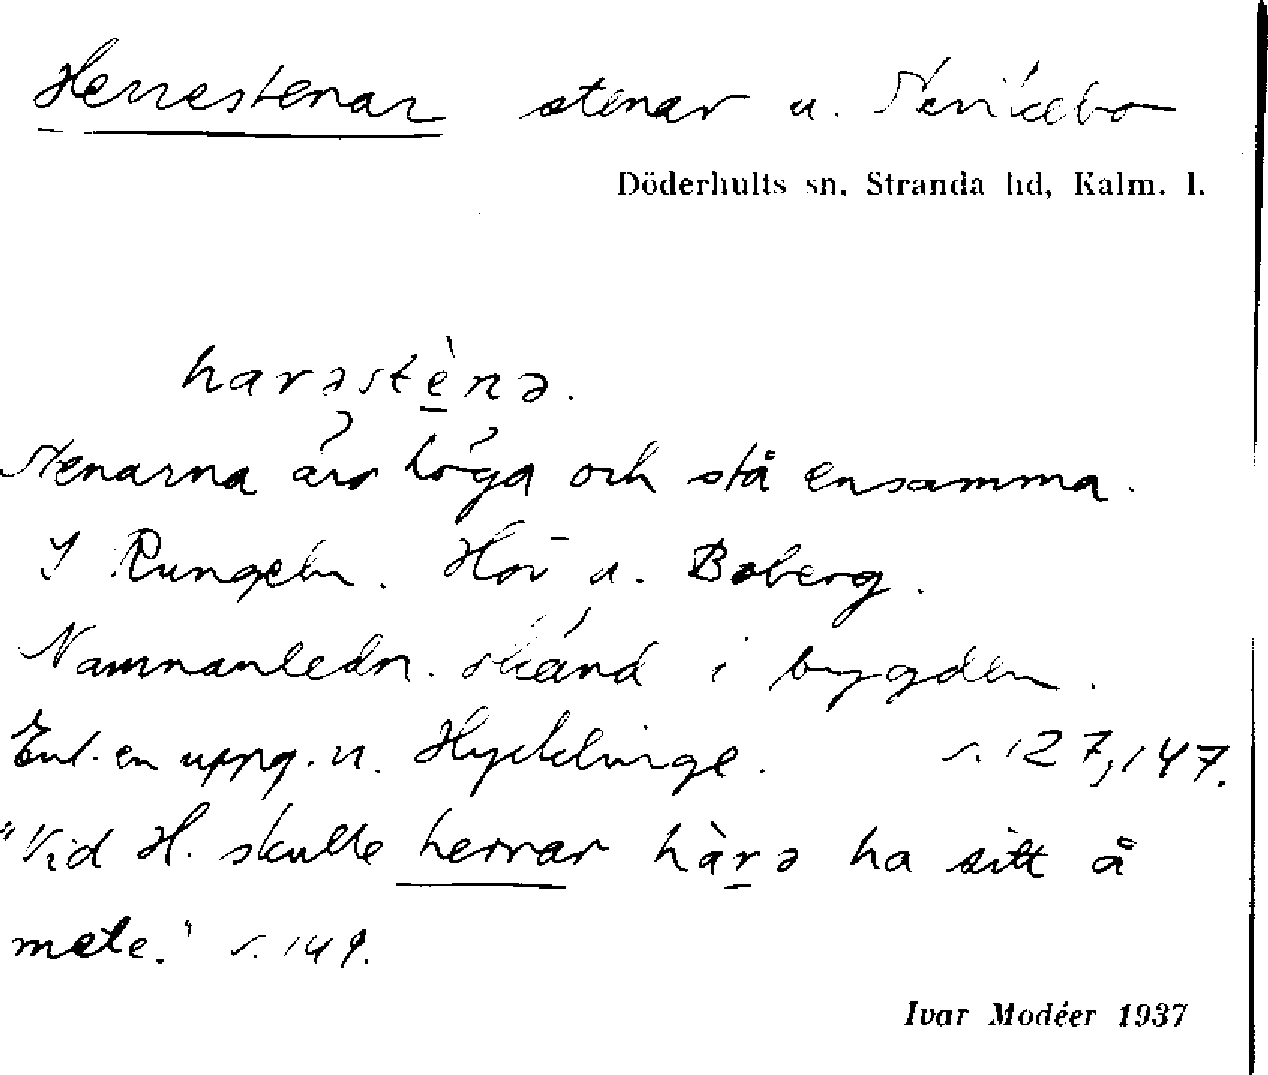 Herrestenar stenar u.
Döderhults sn. Stranda hd, Kalm. l.
harəstènə.
Stenarna äro höga och stå ensamma.
I Hör u. Boberg.
Namnanledn. okänd i bygden.
Enl. en uppg. u. s. 127, 147.
"Vid H. skulle herrar hàrə ha sitt å
mete." s. 149.
Ivar Modéer 1937